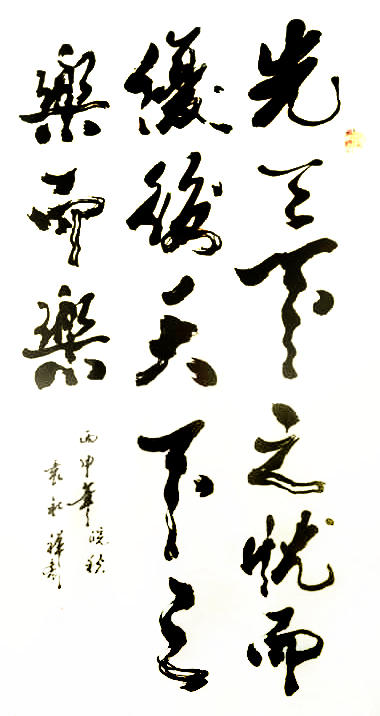 先天下之忧而
優後天下之
樂而樂
丙申年晚秋
袁永祥書